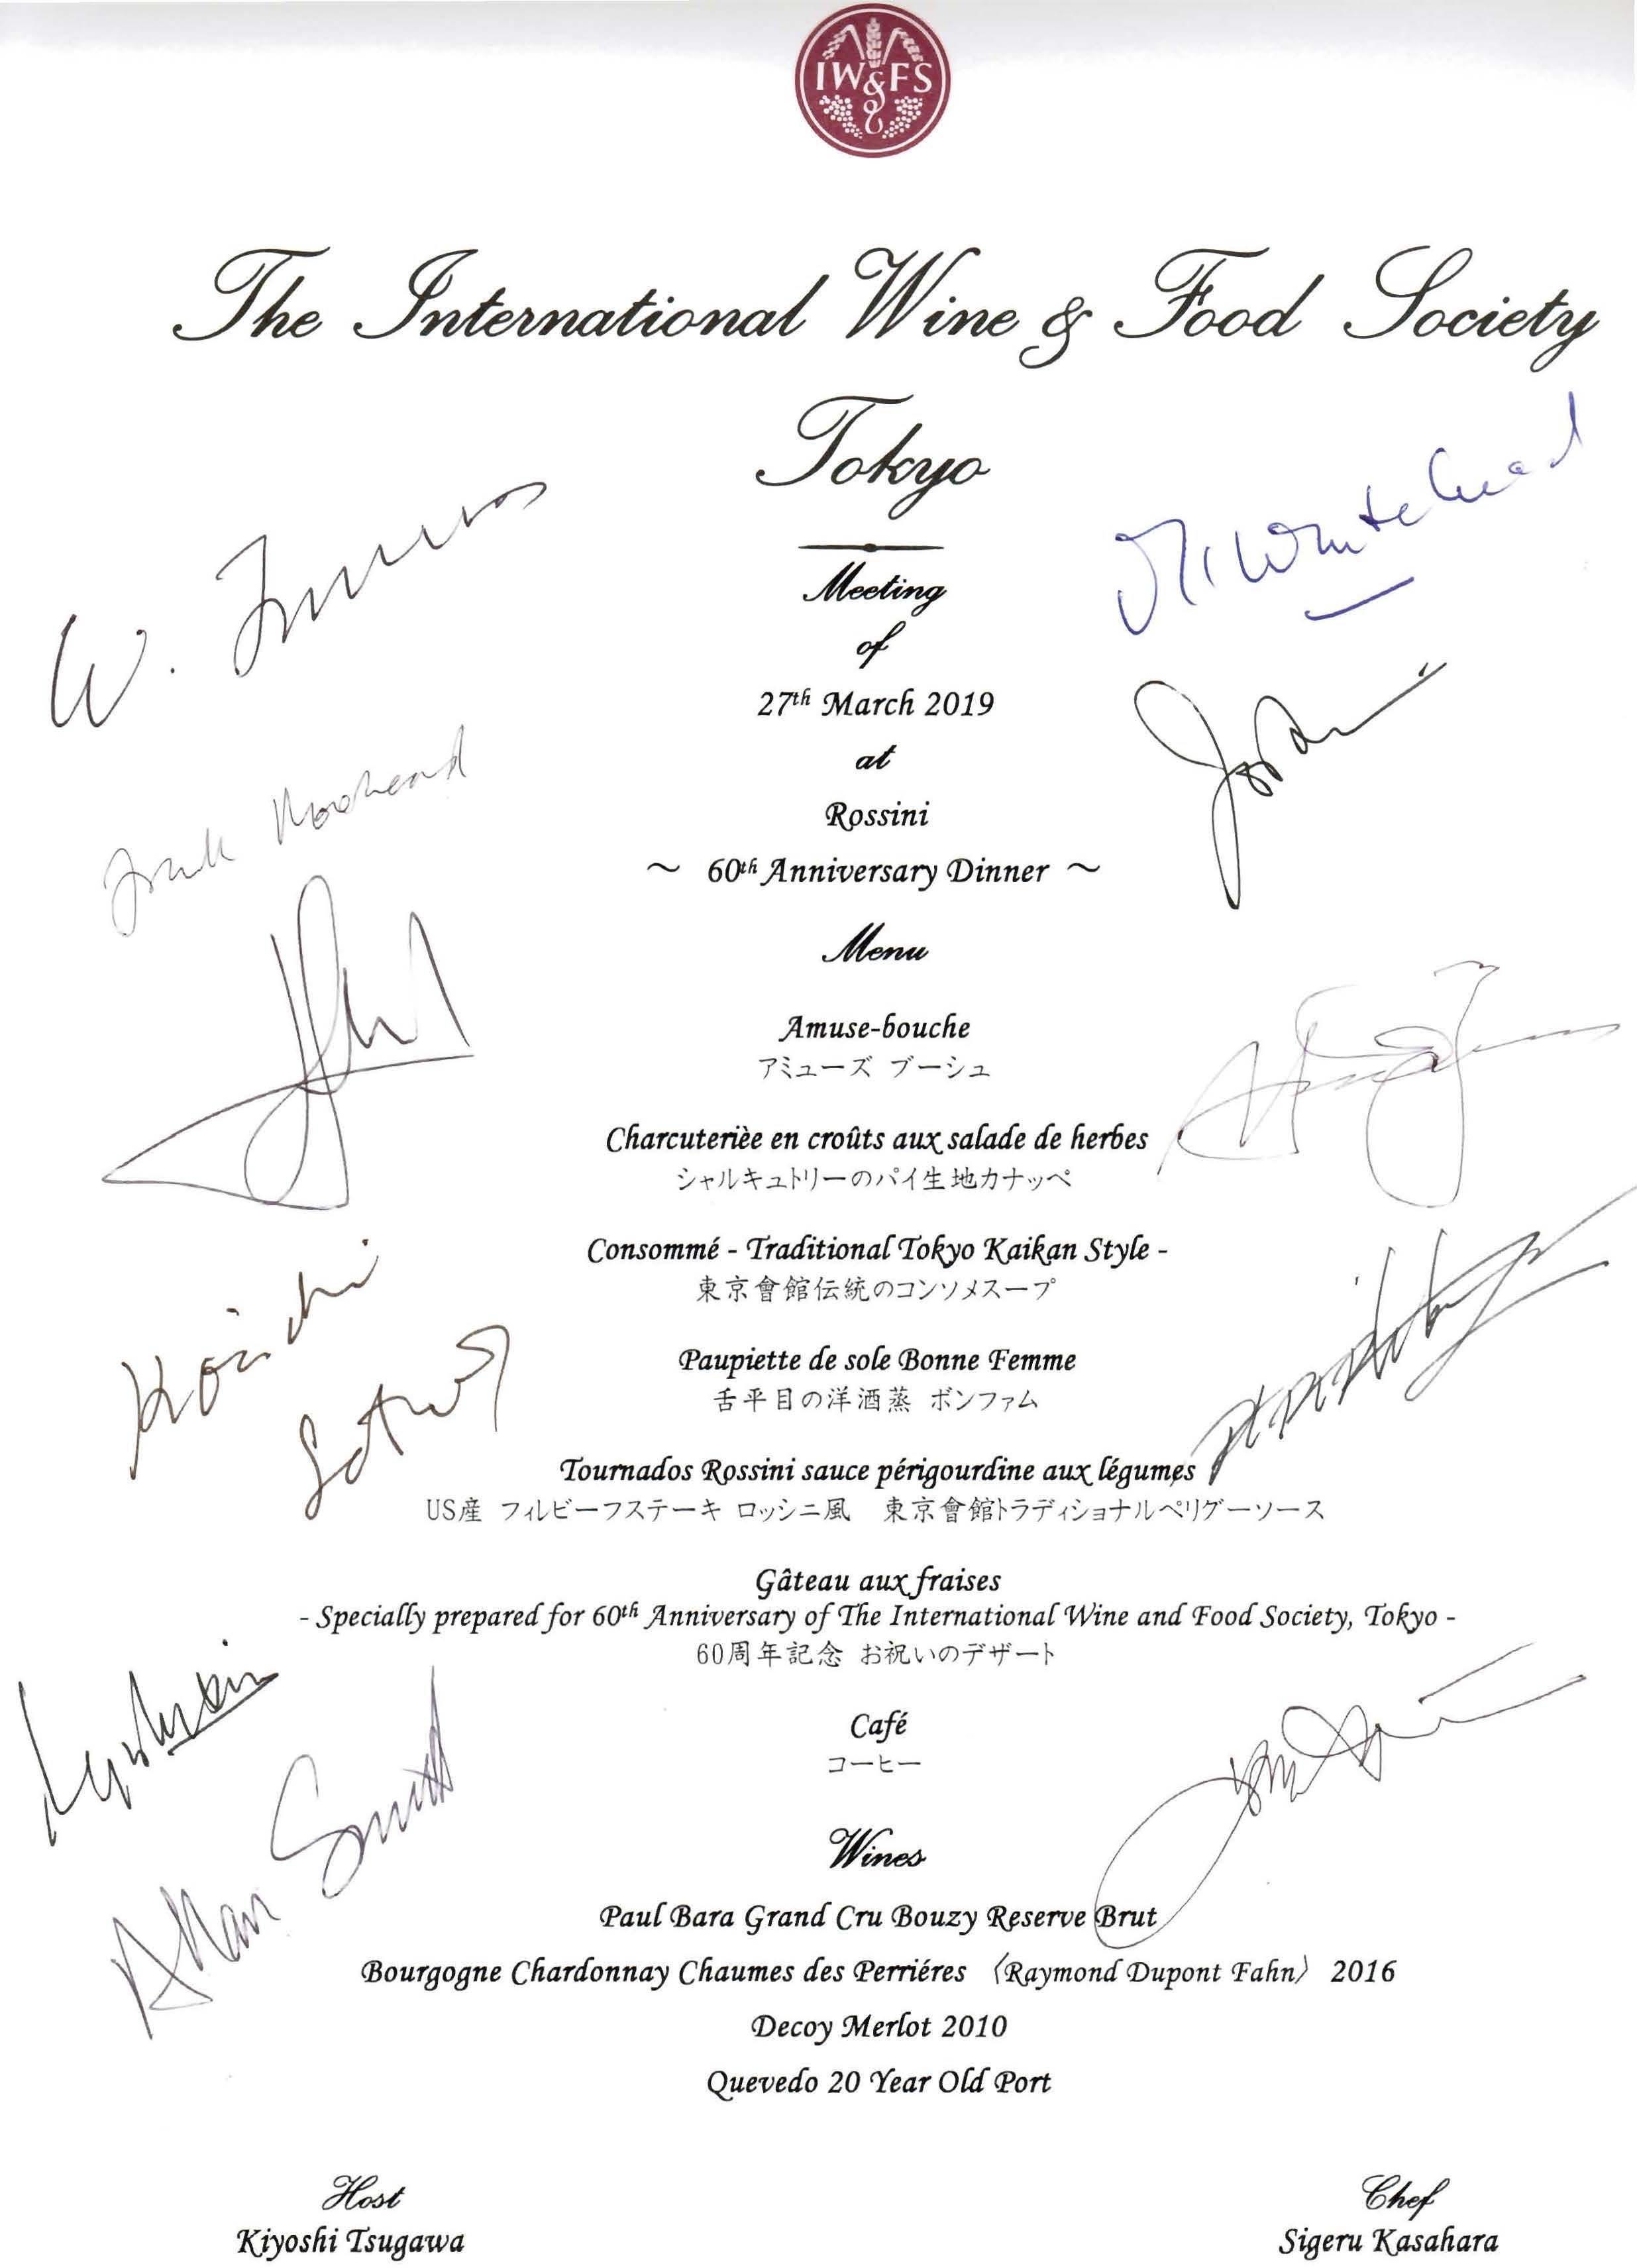 IW&FS
The International Wine & Food Society
Tokyo
Meeting
of
27th March 2019
at
Rossini
～ 60th Anniversary Dinner ～
Menu
Amuse-bouche
アミューズ ブーシュ
Charcuterièe en croûts aux salade de herbes
シャルキュトリーのパイ生地カナッペ
Consommé - Traditional Tokyo Kaikan Style -
東京會館伝統のコンソメスープ
Paupiette de sole Bonne Femme
舌平目の洋酒蒸 ボンファム
Tournados Rossini sauce périgourdine aux légumes
US産 フィレビーフステーキ ロッシーニ風 東京會館トラディショナルペリグーソース
Gâteau aux fraises
- Specially prepared for 60th Anniversary of The International Wine and Food Society, Tokyo -
60周年記念 お祝いのデザート
Café
コーヒー
Wines
Paul Bara Grand Cru Bouzy Reserve Brut
Bourgogne Chardonnay Chaumes des Perriéres 〈Raymond Dupont Fahn〉 2016
Decoy Merlot 2010
Quevedo 20 Year Old Port
Host
Kiyoshi Tsugawa
Chef
Sigeru Kasahara
Koichi
Allan Smith